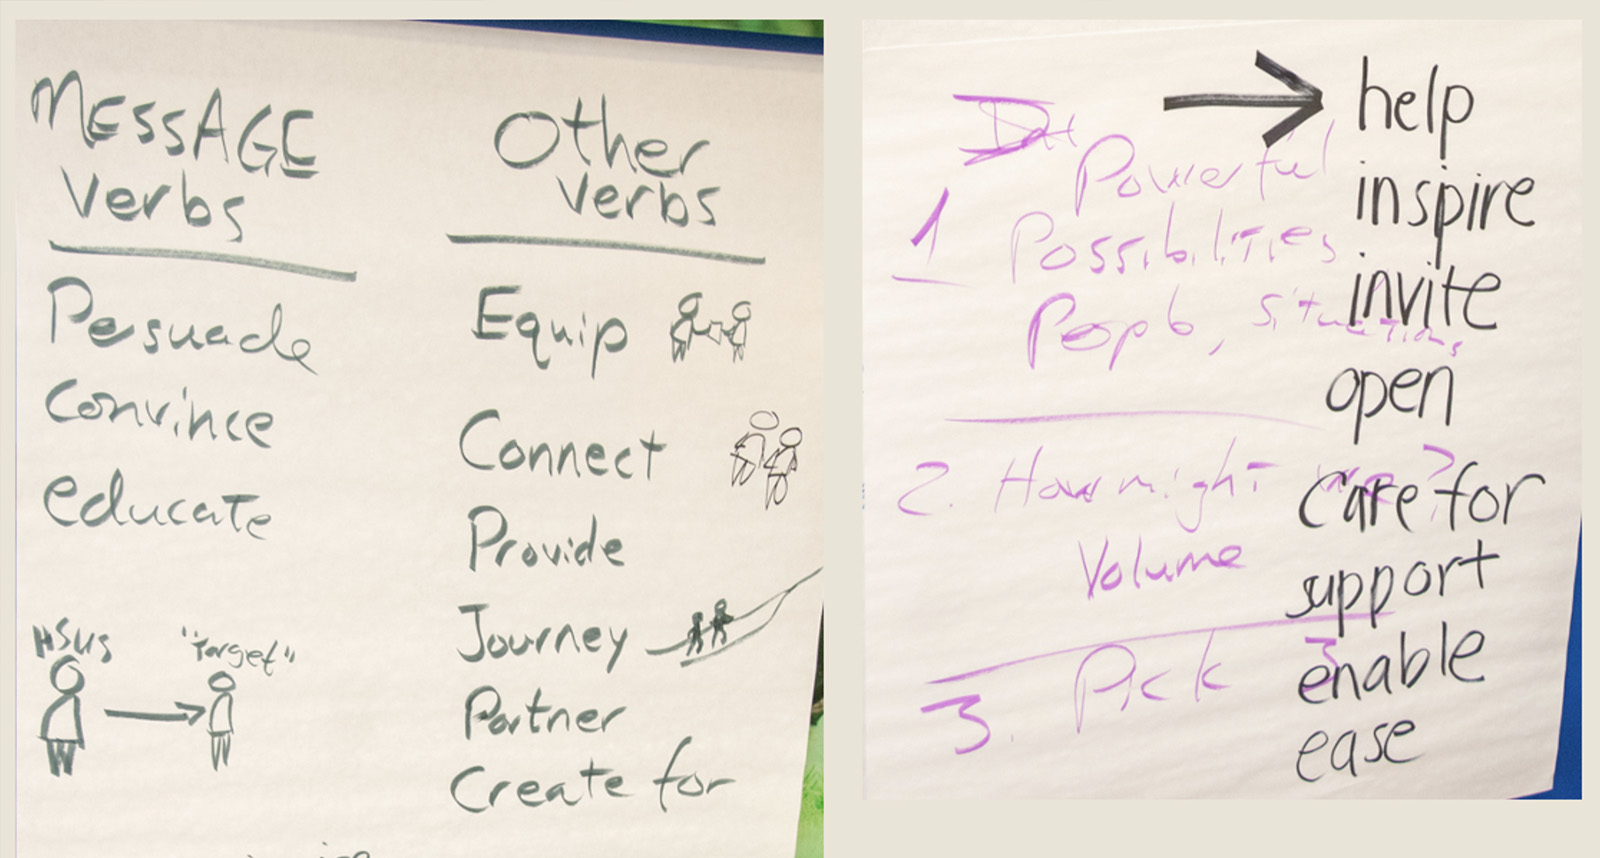 MESSAGE
Verbs
Persuade
Convince
educate
HSUS
"Target"
Other
Verbs
Equip
Connect
Provide
Journey
Partner
Create for
help
inspire
invite
open
care for
support
enable
ease
Powerful
1 Possibilities
People, Situations
2. How might we?
Volume
3. Pick 3